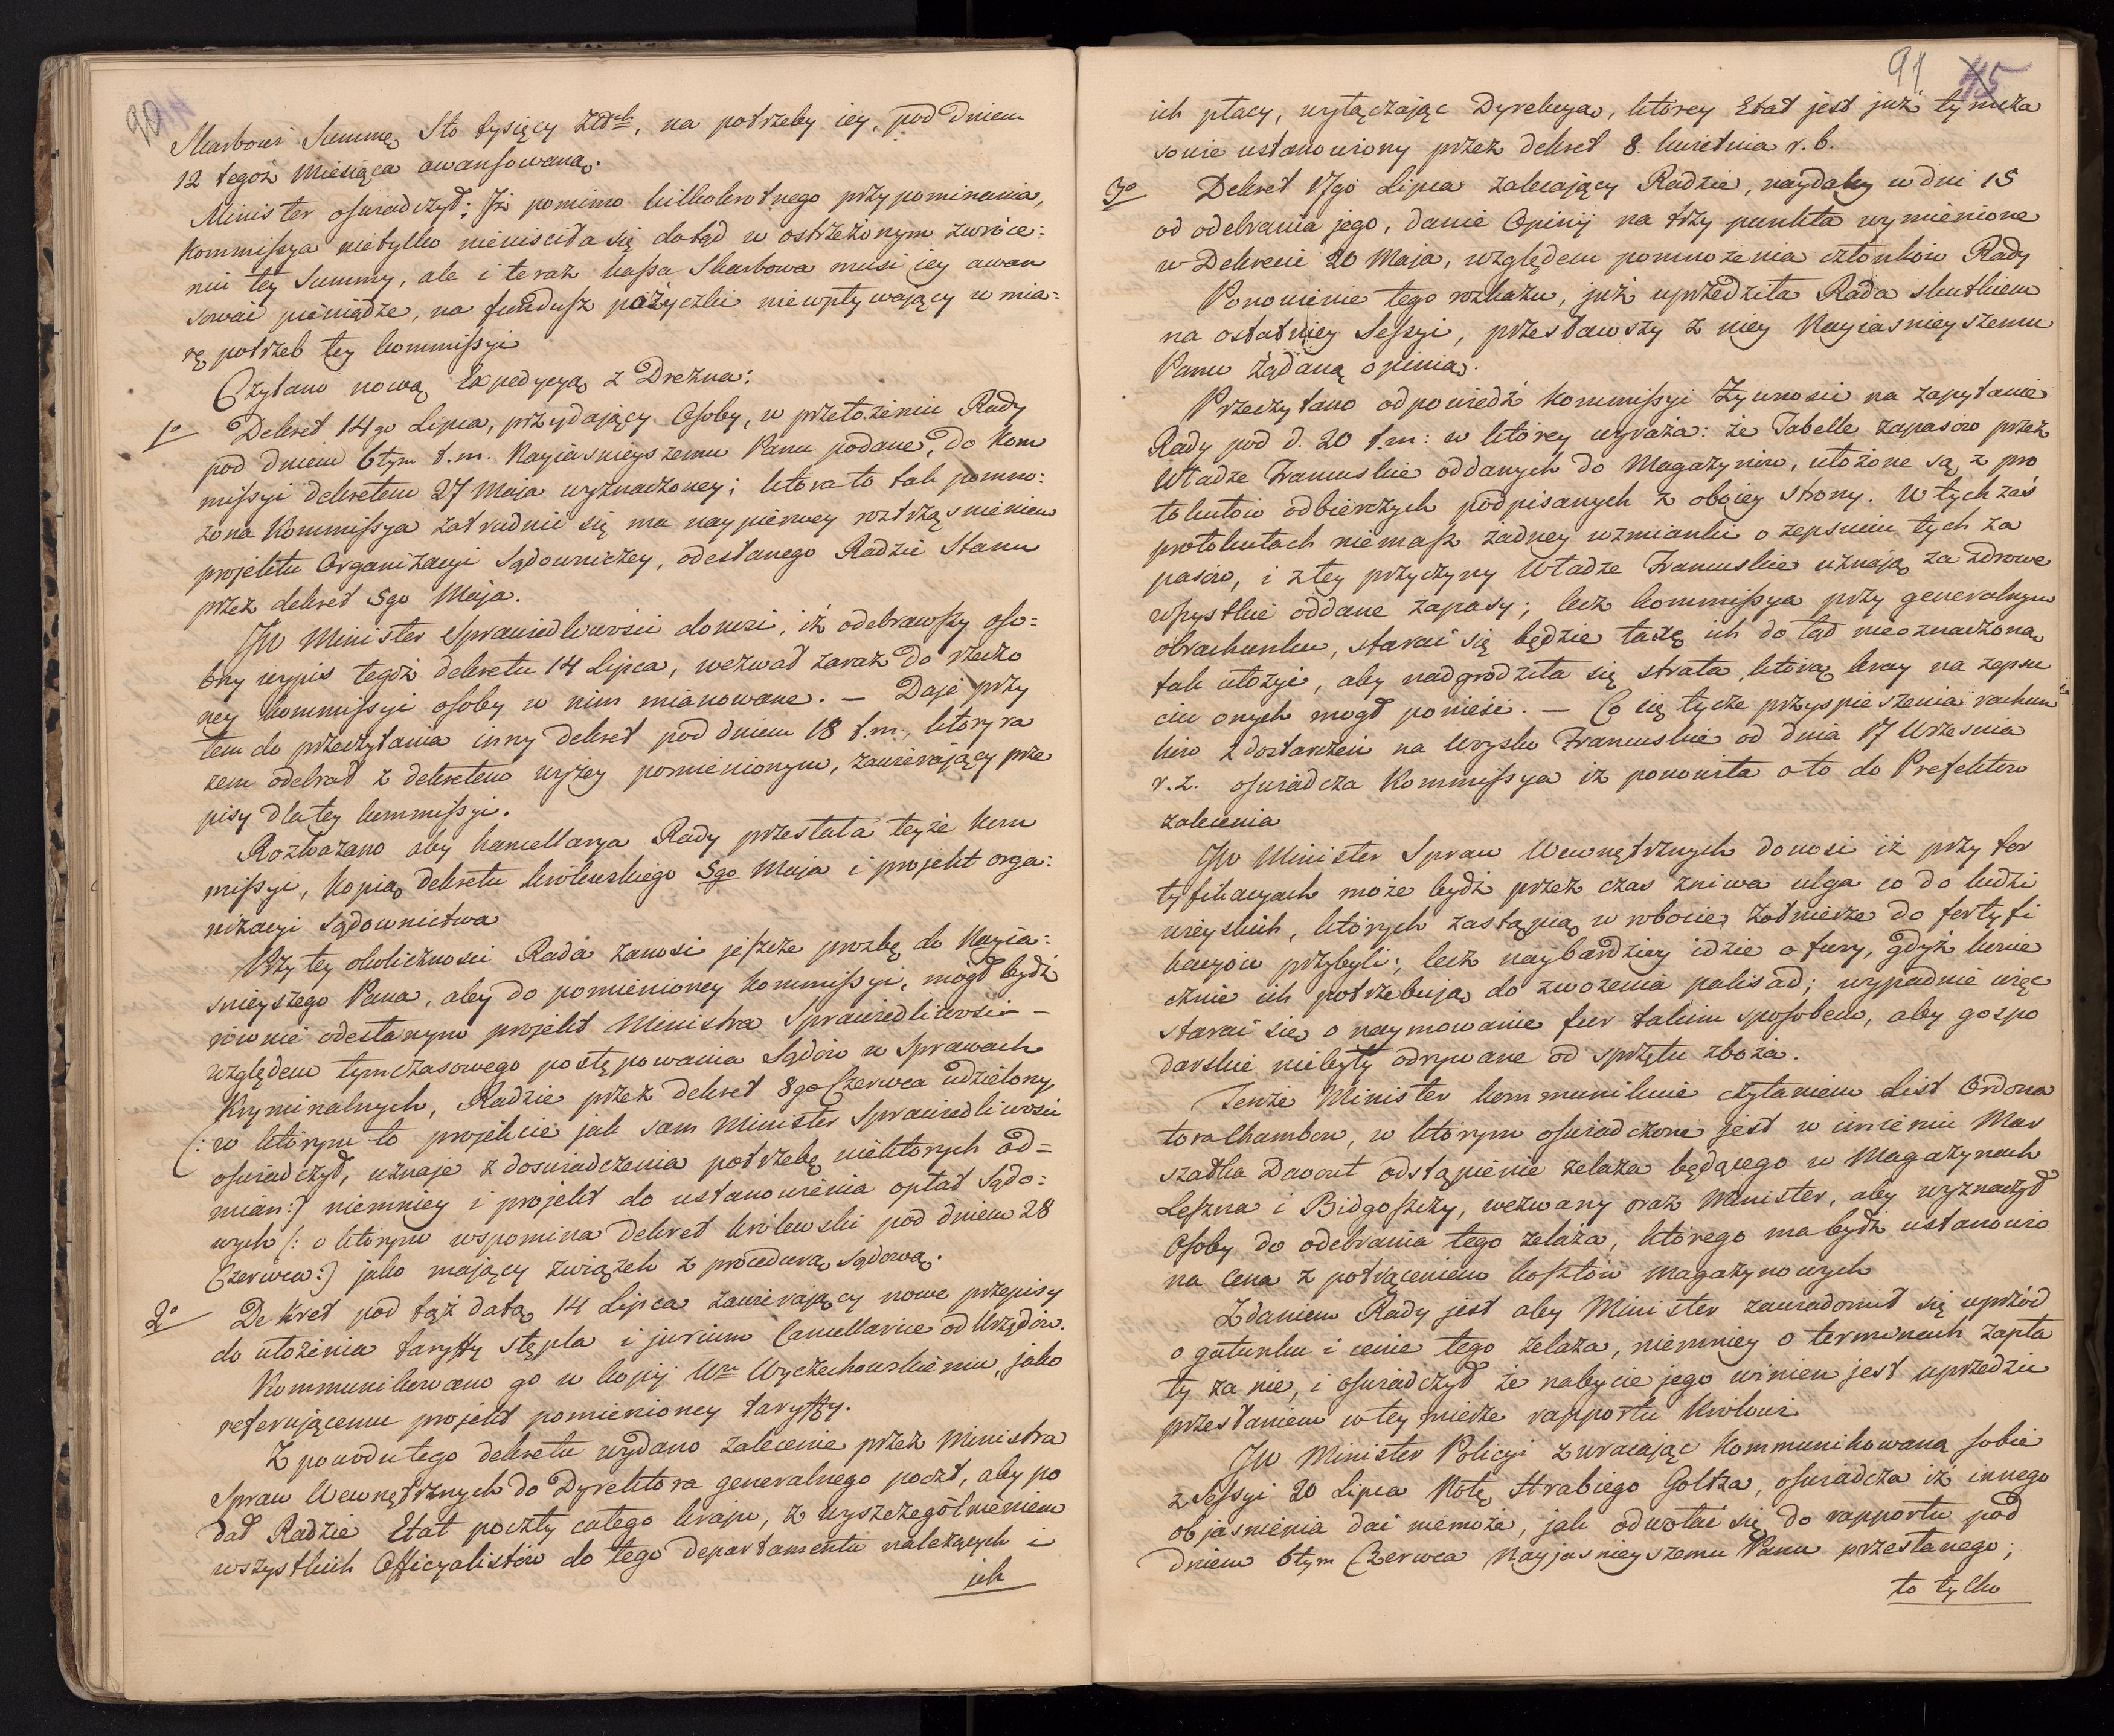 90
Skarbowi Summę Sto tysięcy Złtch, na potrzeby iey, pod dniem
12 tegoż Miesiąca awansowaną.
Minister oswiadczył; Jż pomimo kilkokrotnego przypominania,
Kommissya nietylko nieuisciła się dotąd w ostrzeżonym zwróce:
niu tey Summy, ale i teraz kassa Skarbowa musi iey awan
sować pieniądze, na fundusz pożyczki niewpływający w mia:
rę potrzeb tey kommissyi
Czytano nową Expedycyą z Drezna:
1o Dekret 14go Lipca, przydający Osoby, w przełożeniu Rady
pod dniem 6tym t.m. Nayiasnieyszemu Panu podane, do Kom
missyi dekretem 27 Maja wyznaczoney; która to tak pomno:
żona Kommissya zatrudnić się ma naypierwey roztrząsnieniem
projektu Organizacyi Sądowniczey, odesłanego Radzie Stanu
przez dekret 5go Maja.
JW Minister Sprawiedliwości donosi, iż odebrawszy oso:
bny wypis tegoż dekretu 14 Lipca, wezwał zaraz do rzeczo
ney kommissyi osoby w nim mianowane. – Daje przy
tem do przeczytania inny dekret pod dniem 18 t.m., który ra
zem odebrał z dekretem wyżey pomienionym, zawierający prze
pisy dla tey kommissyi.
Rozkazano aby kancellarya Rady przesłała teyże Kom
missyi, kopią dekretu królewskiego 5go Maja i projekt orga:
nizacyi Sądownictwa
Przy tey okoliczności Rada zanosi jeszcze prozbę do Nayia:
snieyszego Pana, aby do pomienioney Kommissyi, mógł bydź
równie odesłanym projekt Ministra Sprawiedliwości –
względem tymczasowego postępowania Sądów w Sprawach
Kryminalnych, Radzie przez dekret 8go Czerwca udzielony,
(: w którym to projekcie jak sam Minister Sprawiedliwości
oświadczył, uznaje z doswiadczenia potrzebę niektórych od=
mian:) niemniey i projekt do ustanowienia opłat Sądo:
wych (: o którym wspomina dekret królewski pod dniem 28
Czerwca:) jako mający związek z procedurą sądową.
2o Dekret pod tąż datą 14 Lipca zawierający nowe przepisy
do ułożenia taryffy stępla i jurium Cancellariae od Urzędów.
Kommunikowano go w kopij Wmu Wyczechowskiemu, jako
referującemu projekt pomienioney taryffy.
Z powodu tego dekretu wydano zalecenie przez Ministra
Spraw Wewnętrznych do Dyrektora generalnego poczt, aby po
dał Radzie Etat poczty całego kraju, z wyszczególnieniem
wszystkich Officyalistów do tego departamentu należących i
ich
91 115
ich płacy, wyłączając Dyrekcyą, którey Etat jest już tymcza
sowie ustanowiony przez dekret 8. kwietnia r.b.
3o Dekret 17go Lipca zalecający Radzie, naydaley w dni 15
od odebrania jego, danie Opinij na trzy punkta wymienione
w Dekrecie 20 Maja, względem pomnożenia członków Rady
Ponowienie tego rozkazu, już uprzedziła Rada skutkiem
na ostatniey Sessyi, przesławszy z niey Nayiasnieyszemu
Panu żądaną opinią.
Przeczytano odpowiedź Kommissyi Żywności na zapytanie
Rady pod d. 20 t.m: w którey wyraża: że Tabelle zapasów przez
Władze Francuskie oddanych do Magazynów, ułożone są z pro
tokułów odbierczych podpisanych z obóiey strony. W tych zaś
protokułach niemasz żadney wzmianki o zepsuciu tych za
pasów, i z tey przyczyny Władze Francuskie uznają za zdrowe
wszystkie oddane zapasy; lecz kommissya przy generalnym
obrachunku, starać się będzie taxę ich do tąd nieoznaczoną
tak ułożyć, aby nadgrodziła się strata którą kray na zepsu
ciu onych mógł ponieść. – Co się tycze przyspieszenia rachun
ków z dostarczeń na Woysko Francuskie od dnia 17 Września
r.z. oswiadcza Kommissya iż ponowiła o to do Prefektów
zalecenia
JW Minister Spraw Wewnętrznych donosi iż przy for
tyfikacyach może bydź przez czas żniwa ulga co do ludzi
wieyskich, których zastąpią w robocie, żołnierze do fortyfi
kacyów przybyli; lecz naybardziey idzie o fury, gdyż konie
cznie ich potrzebują do zwożenia palisad; wypadnie więc
starać się o naymowanie fur takim sposobem, aby gospo
darskie niebyły odrywane od sprzętu zboża.
Tenże Minister kommunikuie czytaniem List Ordona
tora Chambon, w którym oswiadczone jest w imieniu Mar
szałka Davout odstąpienie żelaza będącego w Magazynach
Leszna i Bidgoszczy, wezwany oraz Minister, aby wyznaczył
Osoby do odebrania tego żelaza, którego ma bydź ustanowio
na cena z potrąceniem kosztów magazynowych
Zdaniem Rady jest aby Minister zawiadomił się uprzód
o gatunku i cenie tego żelaza, niemniey o terminach zapła
ty za nie, i oswiadczył że nabycie jego winien jest uprzedzić
przesłaniem w tey mierze rapportu Królowi
JW Minister Policyi zwracając Kommunikowaną sobie
z Sessyi 20 Lipca Notę Hrabiego Goltza, oswiadcza iż innego
objasnienia dać niemoże, jak odwołać się do rapportu pod
dniem 6tym Czerwca Nayjasnieyszemu Panu przesłanego;
to tylko